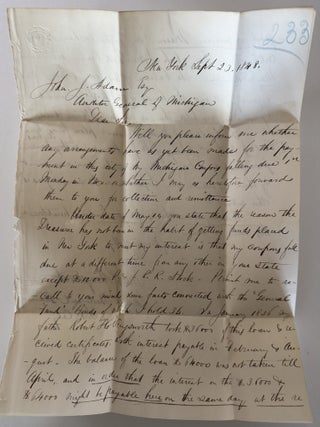 233
New York Sept 23. 1848.
John J. Adam Esq
Auditor General of Michigan
Dear Sir
Will you please inform me whether
any arrangements have as yet been made for the pay-
ment in this city of the Michigan Coupons falling due in
May and or whether I may as heretofore forward
them to you for collection and remittance
Under date of May you state that the reason the
Treasurer has not been in the habit of getting funds placed
in New York to meet my interest is that my coupons fall
due at a different time from any other in your state
except $ of Stock. Permit me to re-
call to your mind some facts connected with the General
Fund Bonds of which I hold 36. In January 1836 my
father Robert took $36000 of this loan & re
ceived certificates with interest payable in February & Au-
gust. The balance of the loan $64000 was not taken till
April, and in order that the interest on the $36000 &
$64000 might be payable here on the same day at the re